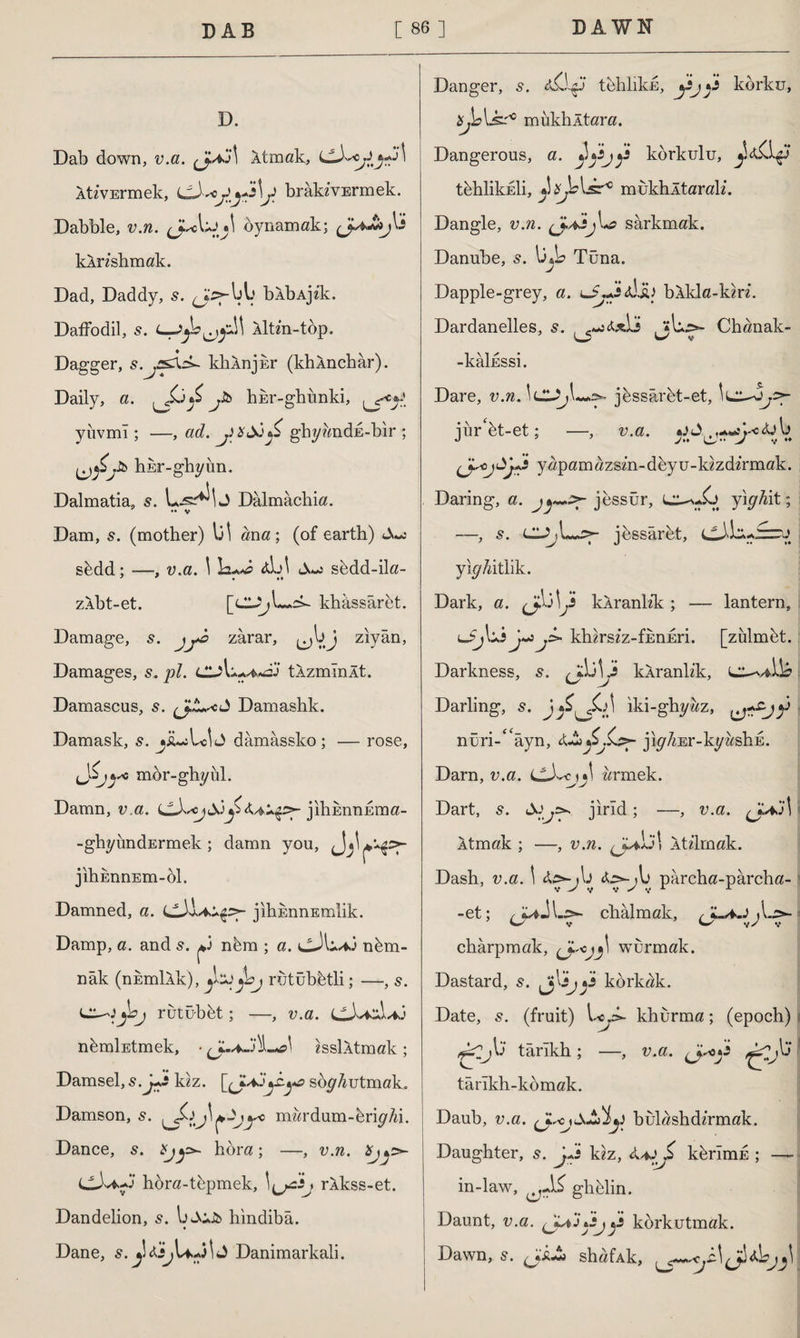 DAB
[ 86 ]
DAWN
D.
Dab down, v.a. آتمق Ătmak,
ĂtivErmek, brăkivErmek.
Dabble, v.n. اوينامق ŏynamak;
kărishmak.
Dad, Daddy, s. باباجق băbAjik.
Daffodil, s. Ăltin-tŏp.
Dagger, s. خنجر khănjEr (khănchăr).
Daily, a. هر كونكى hEr-ghŭnki,
yŭvmī; —, ad. بر كونده ghyündE-bīr;
هر كون hEr-ghyün.
Dalmatia, s. دالماچيا Dălmăchia.
Dam, s. (mother) انا ăna; (of earth) سد
sĕdd; —, v.a. سد ايله ضبط ا sĕdd-ila-
zăbt-et. [خسارت khăssārĕt.
Damage, s. ضرر zărar, زيان ziyān,
Damages, s. pl. تضمينات tăzmīnăt.
Damascus, s. دمشق Damashk.
Damask, s. داماسقو dămăssko; — rose,
مور كل mŏr-ghyŭl.
Damn, v.a. جهنمه كوندرمك jihEnnEma-
-ghyŭndErmek; damn you, جهنم اول
jihEnnEm-ŏl.
Damned, a. جهنملك jihEnnEmlik.
Damp, a. and s. نم nĕm; a. نمناك nĕm-
nāk (nEmlăk), رطوبتلى rŭtūbĕtli; —, s.
رطوبت rŭtūbĕt; —, v.a. نملتمك
nĕmlEtmek, اصلاتمق isslătmak;
Damsel, s. قز kiz. [صوغوتمق sŏghutmak.
Damson, s. مردم اريكى mŭrdum-ĕrighi.
Dance, s. خوره hŏra; —, v.n. خوره
تپمك hŏra-tĕpmek, رقص ا răkss-et.
Dandelion, s. هندبا hindibā.
Dane, s. دانيمارقه لى Danimarkali.
Danger, s. تهلكه tĕhlikE, قورقو kŏrku,
مخاطره mŭkhătara.
Dangerous, a. قورقولو kŏrkulu, تهلكه لى
tĕhlikEli, مخاطره لى mŭkhătarali.
Dangle, v.n. صارقمق sărkmak.
Danube, s. طونا Tūna.
Dapple-grey, a. بقله قيرى băkla-kiri.
Dardanelles, s. چناق قلعه سى Chănak-
-kălEssi.
Dare, v.n. جسارت ا jĕssārĕt-et, جرئت ا
jŭr'ĕt-et; —, v.a.
yăpamăzsin-dĕyu-kizdirmak.
Daring, a. جسور jĕssūr, يكيت yighit;
—, s. جسارت jĕssārĕt,
yighitlik.
Dark, a. قرانلق kăranlik; — lantern,
خرسز فنارى khirsiz-fEnEri. [ظلمت zŭlmĕt.
Darkness, s. قرانلق kăranlik,
Darling, s. ايكى كوز iki-ghyüz, نور عين
nūri-'ăyn, جكر كوشه jighEr-kyüshE.
Darn, v.a. اورمك ürmek.
Dart, s. جريد jirīd; —, v.a. آتمق
Ătmak; —, v.n. آتلمق Ătilmak.
Dash, v.a. پارچه پارچه ا părcha-părcha-
-et; چالمق chălmak, چارپمق
chărpmak, اورمق wŭrmak.
Dastard, s. قورقاق kŏrkăk.
Date, s. (fruit) خرما khŭrma; (epoch)
تاريخ tărīkh; —, v.a. تاريخ قومق
tărīkh-kŏmak.
Daub, v.a. بولاشدرمق bŭlăshdirmak.
Daughter, s. قز kiz, كريمه kĕrīmE; —
in-law, كلين ghĕlin.
Daunt, v.a. قورقوتمق kŏrkutmak.
Dawn, s. شفق shăfAk,